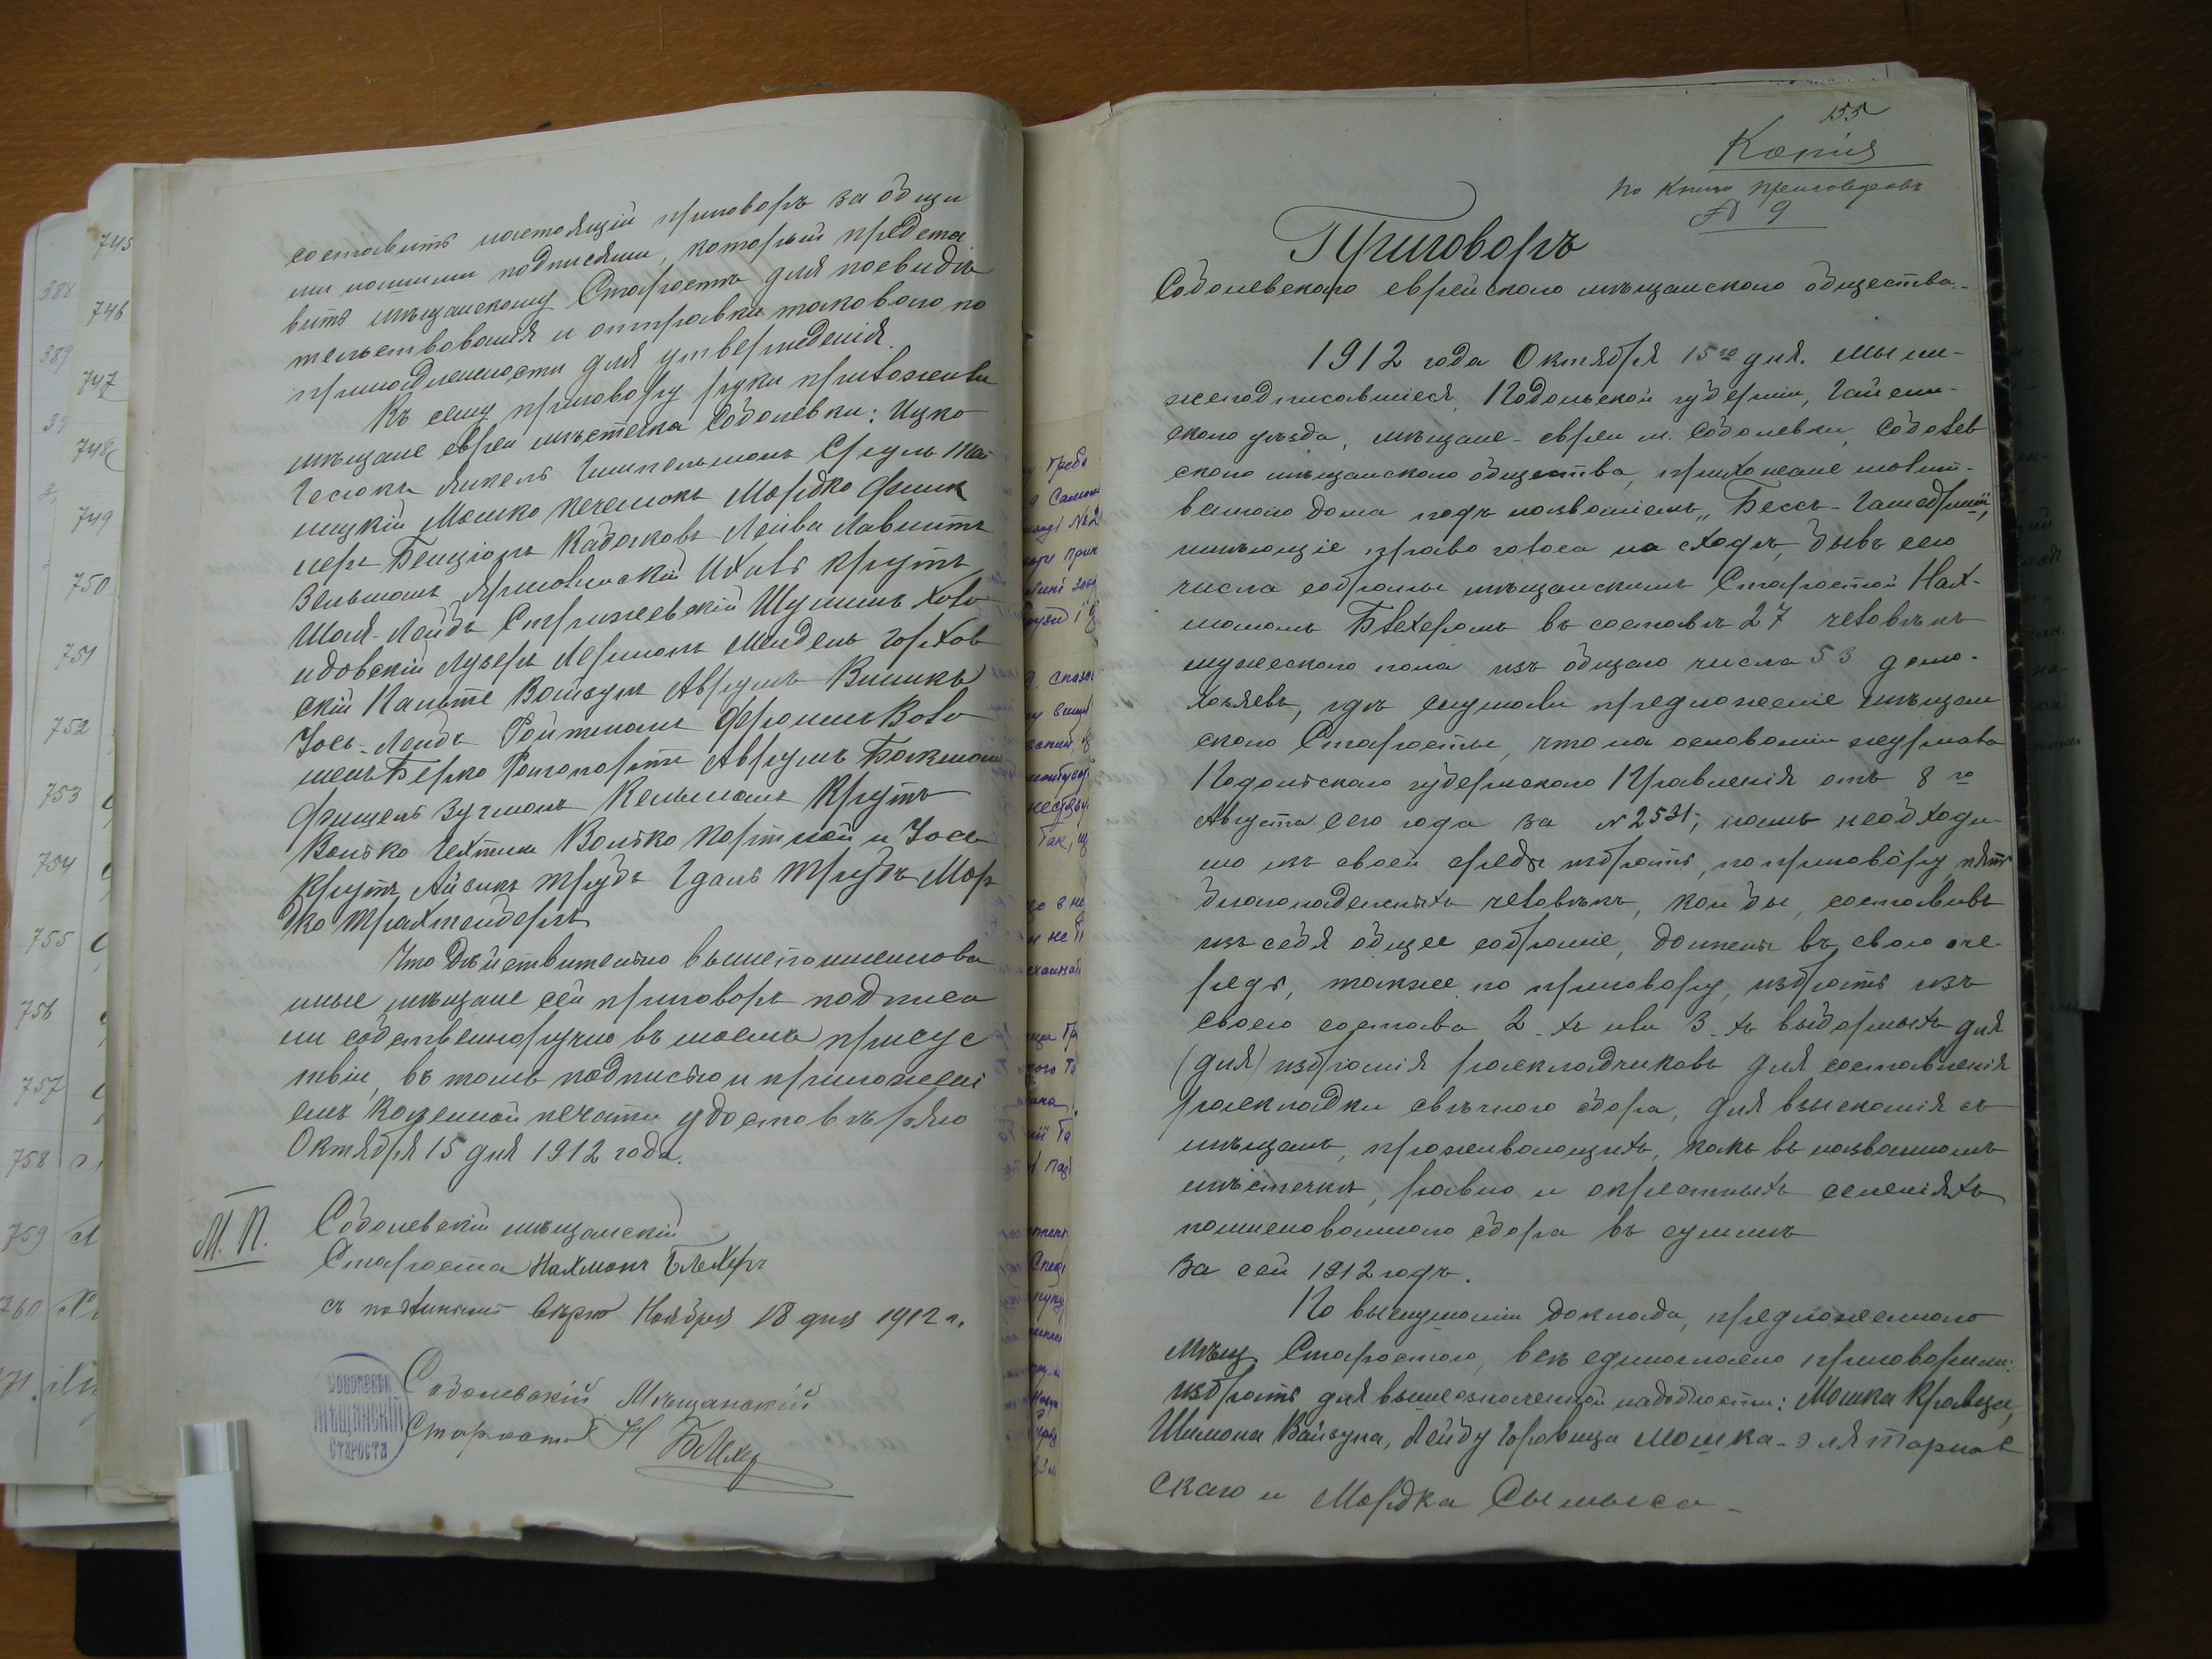 составить настоящій приговоръ за общи
ми нашими подписями, который предста
вить мѣщанскому Старостѣ для посвидѣ
тельствованія и отправки таковаго по
принадлежности для утвержденія.
Къ сему приговору руки приложили
мѣщане евреи мѣстечка Соболевки: Ицко
Янкель Гительманъ Сруль
ницкій Мошко Мордко Финк
Бенціонъ Лейба
Зельманъ Ярмолинскій Ихилъ Крутъ
Шая-Лейбъ Стрижевскій Шулимъ Холо
идовскій Лузеръ Лерманъ Мендель Горхов
скій Вайзулъ Аврумъ Виникъ
Іось-Лейбъ Ройтманъ Фроимъ Воло
Берко Рапопортъ Аврумъ Бакман
Фишель Зугманъ Кельманъ Крутъ
Волько Волько Портной и Іось
Крутъ Айзикъ Трубъ Гдаль Трубъ Мор
дко Трахтенбергъ
Что дѣйствительно вышепоименова
нные мѣщане сей приговоръ подписа
ли собственноручно въ моемъ присус
твіи, въ томъ подписью и приложені
емъ казенной печати удостовѣряю
Октября 15 дня 1912 года.
М. П.
Соболевскій мѣщанскій
Староста Нахманъ Блехеръ
съ подлиннымъ вѣрно Ноября 18 дня 1912 г.
Соболевскій Мѣщанскій
Староста Н Блехер
Соболевск
Мѣщанскій
Староста
745
388
746
389
747
39
748
749
750
751
752
753
754
755
756
757
758
759
760
155
Копія
по книгѣ приговоровъ
№ 9
Приговоръ
Соболевскаго еврейскаго мѣщанскаго общества.
1912 года Октября 15го дня. Мы ни-
жеподписавшіеся, Подольской губерніи, Гайсин-
скаго уѣзда, мѣщане-евреи м. Соболевки, Соболев
скаго мѣщанскаго общества, прихожане молит-
веннаго дома подъ названіемъ „Бессъ-Гамедришъ",
имѣющіе право голоса на сходѣ, бывъ сего
числа собраны мѣщанскимъ Старостой Нах-
маномъ Блехеромъ въ составѣ 27 человѣкъ
мужескаго пола изъ общаго числа 53 домо-
хозяевъ, гдѣ слушали предложеніе мѣщан
скаго Старосты, что на основаніи журнала
Подольскаго губернскаго Правленія отъ 8го
Августа сего года за № 2531, намъ необходи-
мо изъ своей среды избрать, по приговору, пять
благонадежныхъ человѣкъ, кои бы, составивъ
изъ себя общее собраніе, должны въ свою оче-
редь, также по приговору, избрать изъ
своего состава 2-хъ или 3-хъ выборныхъ для
(для) избранія раскладчиковъ для составленія
раскладки свѣчного сбора, для взысканія съ
мѣщанъ, проживающихъ, какъ въ названномъ
мѣстечкѣ, равно и окрестныхъ селеніяхъ
поименованнаго сбора въ суммѣ
за сей 1912 годъ.
По выслушаніи доклада, предложеннаго
Мѣщ. Старостою, всѣ единогласно приговорили:
избрать для вышеозначенной надобности: Мошка Кравца,
Шимона Вайзула, Лейбу Горовица Мошка-Эля Тарнов
скаго и Мордка